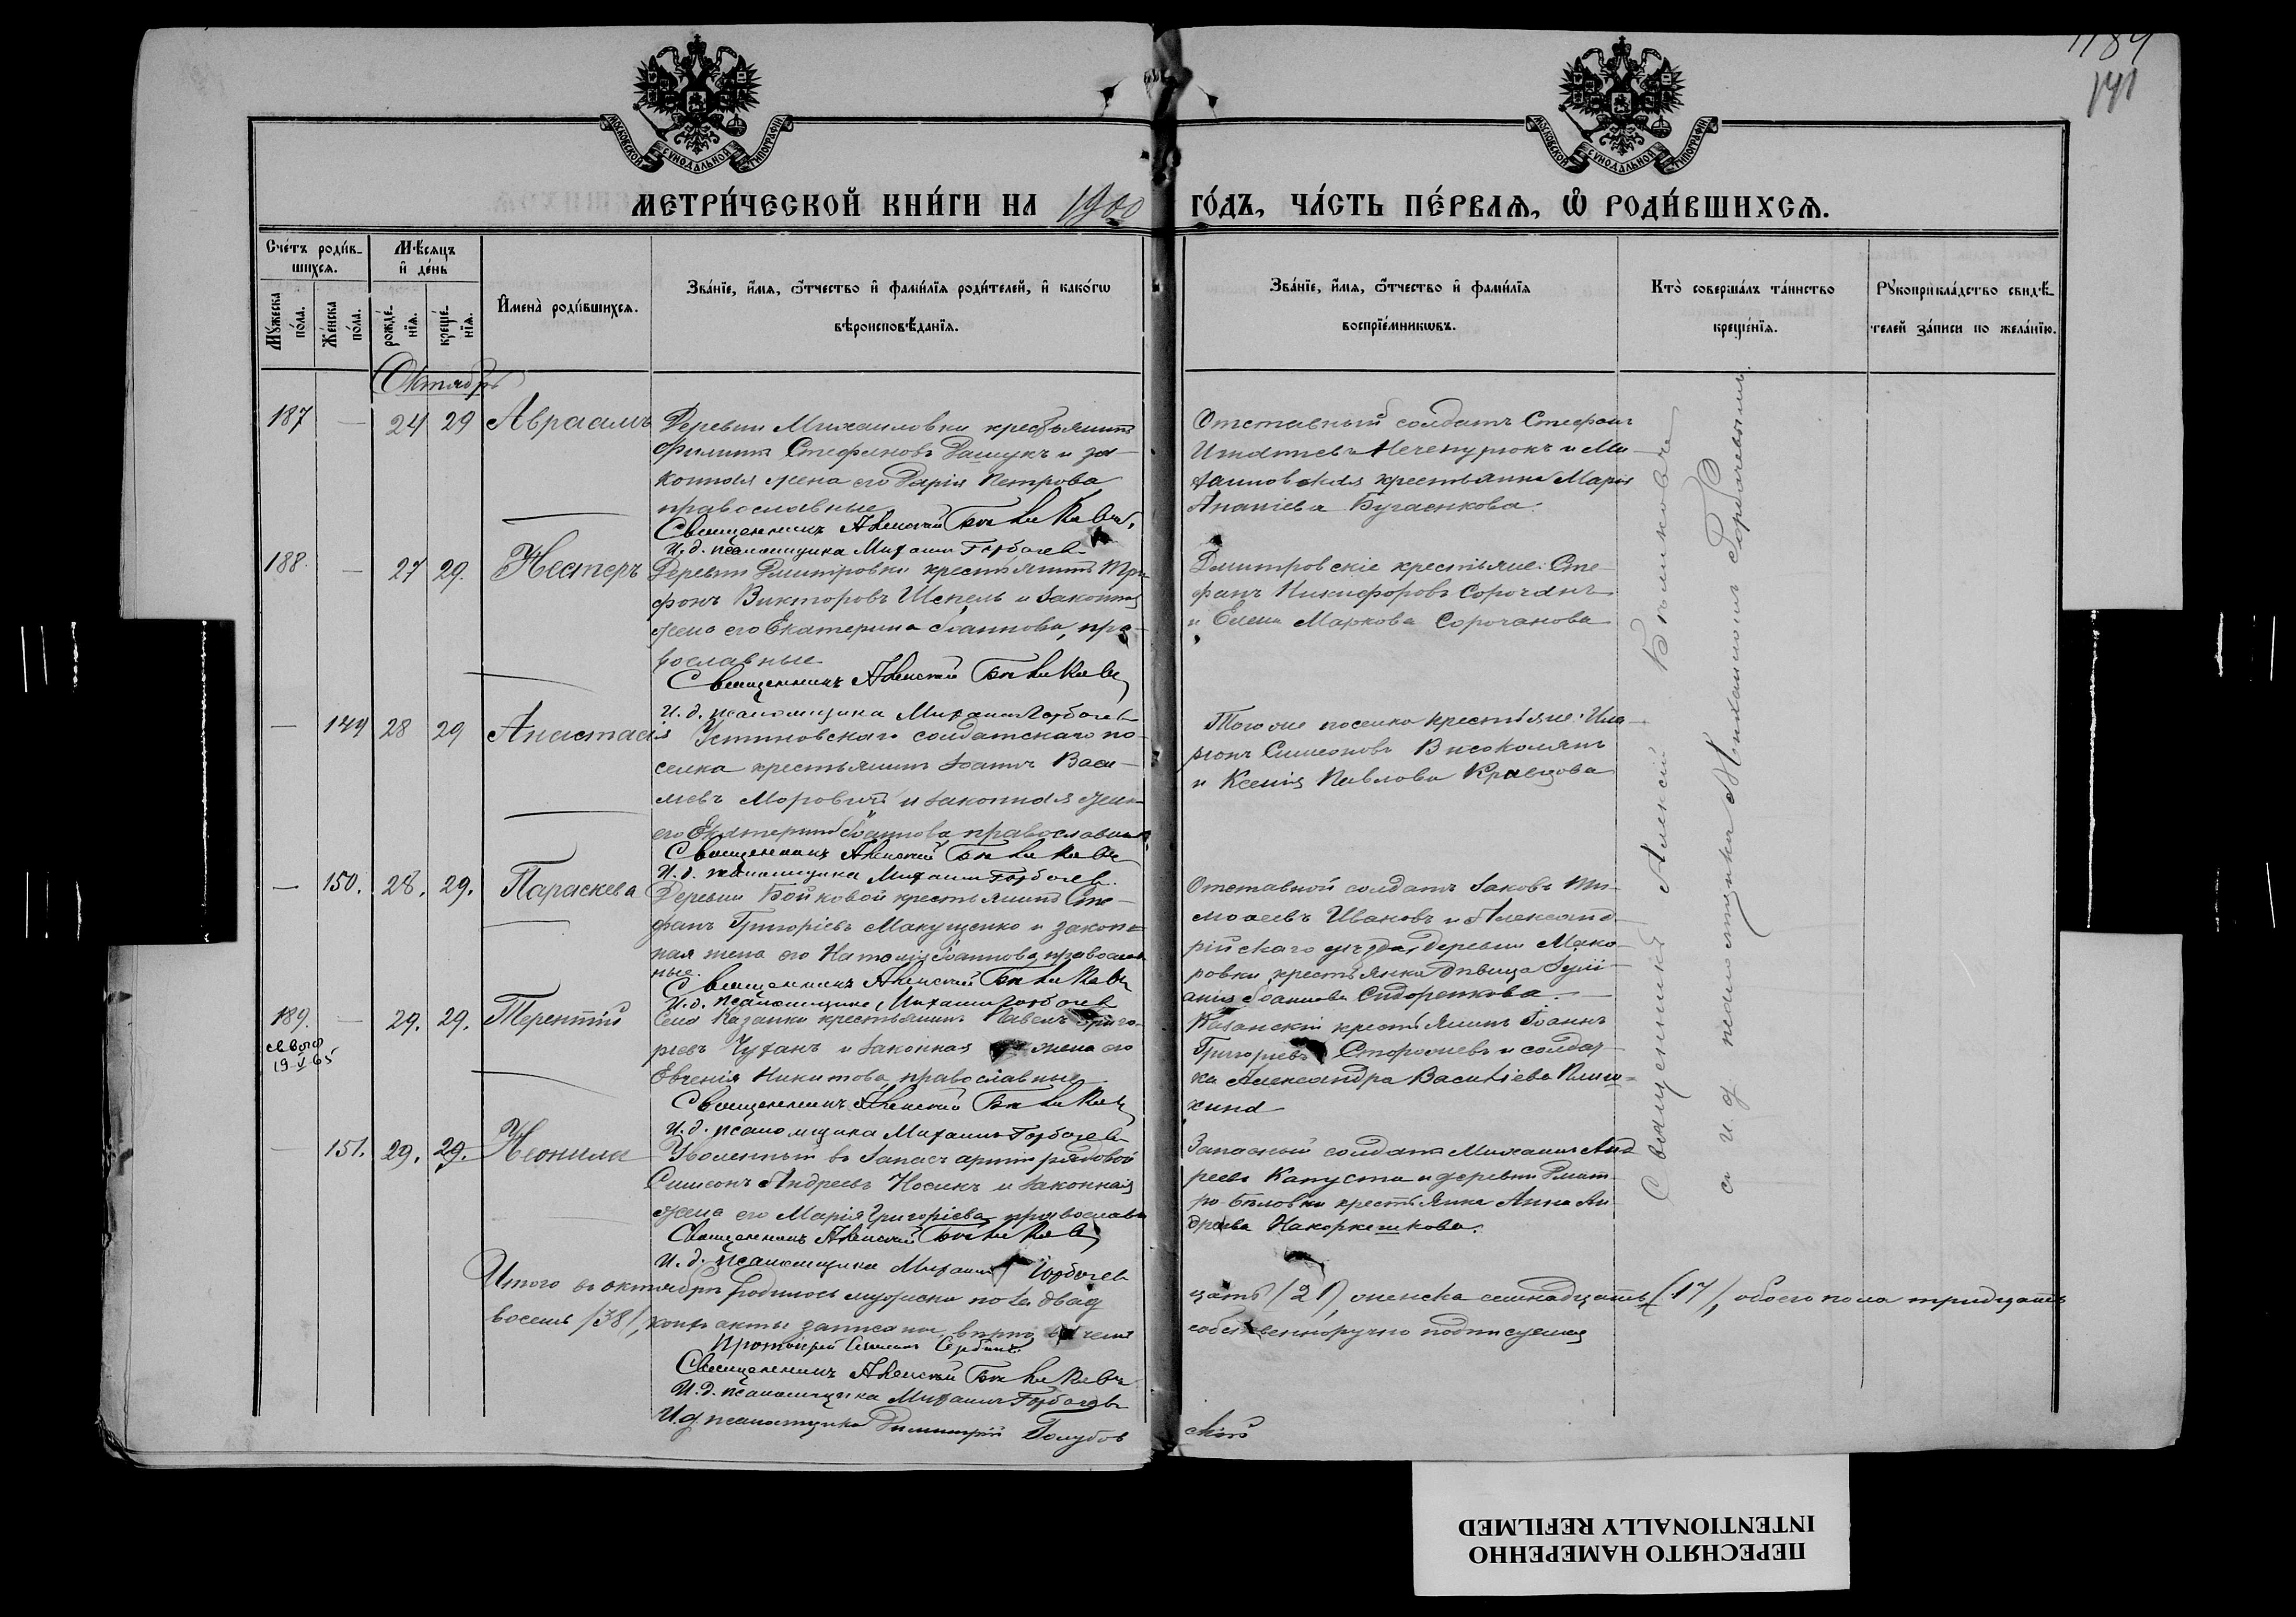 1184
141
МОСКОВСКОЙ СѴНОДАЛЬНОЙ ТИПОГРАФІИ
МОСКОВСКОЙ СѴНОДАЛЬНОЙ ТИПОГРАФІИ
МЕТРИ́ЧЕСКОЙ КНИ́ГИ НА 1900 ГО́ДЪ, ЧА́СТЬ ПЕ́РВАѦ, Ѡ҆ РОДИ́ВШИХСѦ.
Сче́тъ роди́в-
шихсѧ.
Мꙋ́жеска по́ла.
Же́нска по́ла.
Мѣ́сѧцъ и҆ де́нь
рожде́-нїѧ.
креще́-нїѧ.
И҆мена̀ роди́вшихсѧ.
Зва́нїе, и҆́мѧ, ѻ҆́тчество и҆ фами́лїѧ роди́телей, и҆ како́гѡ
вѣроисповѣ́данїѧ.
Зва́нїе, и҆́мѧ, ѻ҆́тчество и҆ фами́лїѧ
воспрїе́мникѡвъ.
Кто̀ соверша́лъ та́инство
креще́нїѧ.
Рꙋкоприкла́дство свидѣ́-
телей за́писи по жела́нїю.
Октябрь
187 — 24 29 Авраамъ
Деревни Михаиловки крестьянинъ
Филиппъ Стефановъ Дащукъ и за-
конная жена его Дарія Петрова
православные
Священникъ Алексій
И. д. псаломщика Михаилъ Горбачев
Отставный солдатъ Стефанъ
Игнатіевъ Нечепурюкъ и Ми-
хаиловская крестьянка Марія
Ананіева Бугаенкова.
188. — 27 29. Нестеръ
Деревни Дмитровки крестьянинъ Три-
фонъ Викторовъ Шепель и законная
жена его Екатерина Іоаннова, пра-
вославные
Священникъ Алексій
И. д. псаломщика Михаилъ Горбачев
Дмитровскіе крестьяне: Сте-
фанъ Никифоровъ Сорочанъ
и Елена Маркова Сорочанова
— 149 28 29 Анастасія
Устиновскаго солдатскаго по-
селка крестьянинъ Іоаннъ Васи-
лиевъ и законная жена
его Екатерина Іоаннова православные
Священникъ Алексій
И. д. псаломщика Михаилъ Горбачев.
Того же поселка крестьяне: Ила-
ріонъ Симеоновъ Високолянъ
и Ксенія Павлова Кравцова
— 150. 28. 29. Параскева
Деревни Бойковой крестьянинъ Сте-
фанъ Григоріевъ Макущенко и закон-
ная жена его Наталія Іоаннова, православ
ные.
Священникъ Алексій
И. д. псаломщика Михаилъ Горбачев
Отставной солдатъ Іаковъ Ти-
моѳеевъ Ивановъ и Александ-
рійскаго уѣзда, деревни Мака-
ровки крестьянка дѣвица Іулі-
анія Іоаннова Сидоренкова.
189. — 29. 29. Терентій
19-V 65
Села Казанки крестьянинъ Павелъ Григо-
рьевъ Чуханъ и законная жена его
Евгенія Никитова, православные.
Священникъ Алексій
И. д. псаломщика Михаилъ Горбачев
Казанскій крестьянинъ Іоаннъ
Григорьевъ Сторожевъ и солдат-
ка Александра Васильева
— 151. 29. 29. Неонила
Уволенный въ запасъ арміи рядовой
Симеонъ Андреевъ Носикъ и законная
жена его Марія Григоріева православн
Священникъ Алексій
И. д. псаломщика Михаилъ Горбачев
Запасный солдатъ Михаилъ Анд
реевъ Капуста и деревни Дмит-
ро-Бѣловки крестьянка Анна Ан
дреева
Итого въ октябрѣ родилось мужеска пола двад
цать (21), женска семнадцать (17), обоего пола тридцать
восемь (38), акты записаны вѣрно въ чемъ
собственноручно подписуемся
Протоіерей Сербинъ
Священникъ Алексій
И. д. псаломщика Михаилъ Горбачевъ
И. д. псаломщика Димитрій Голубов
скій
Священникъ Алексій
и и. д. псаломщика Михаиломъ Горбачевымъ.
ПЕРЕСНЯТО НАМЕРЕННО
INTENTIONALLY REFILMED